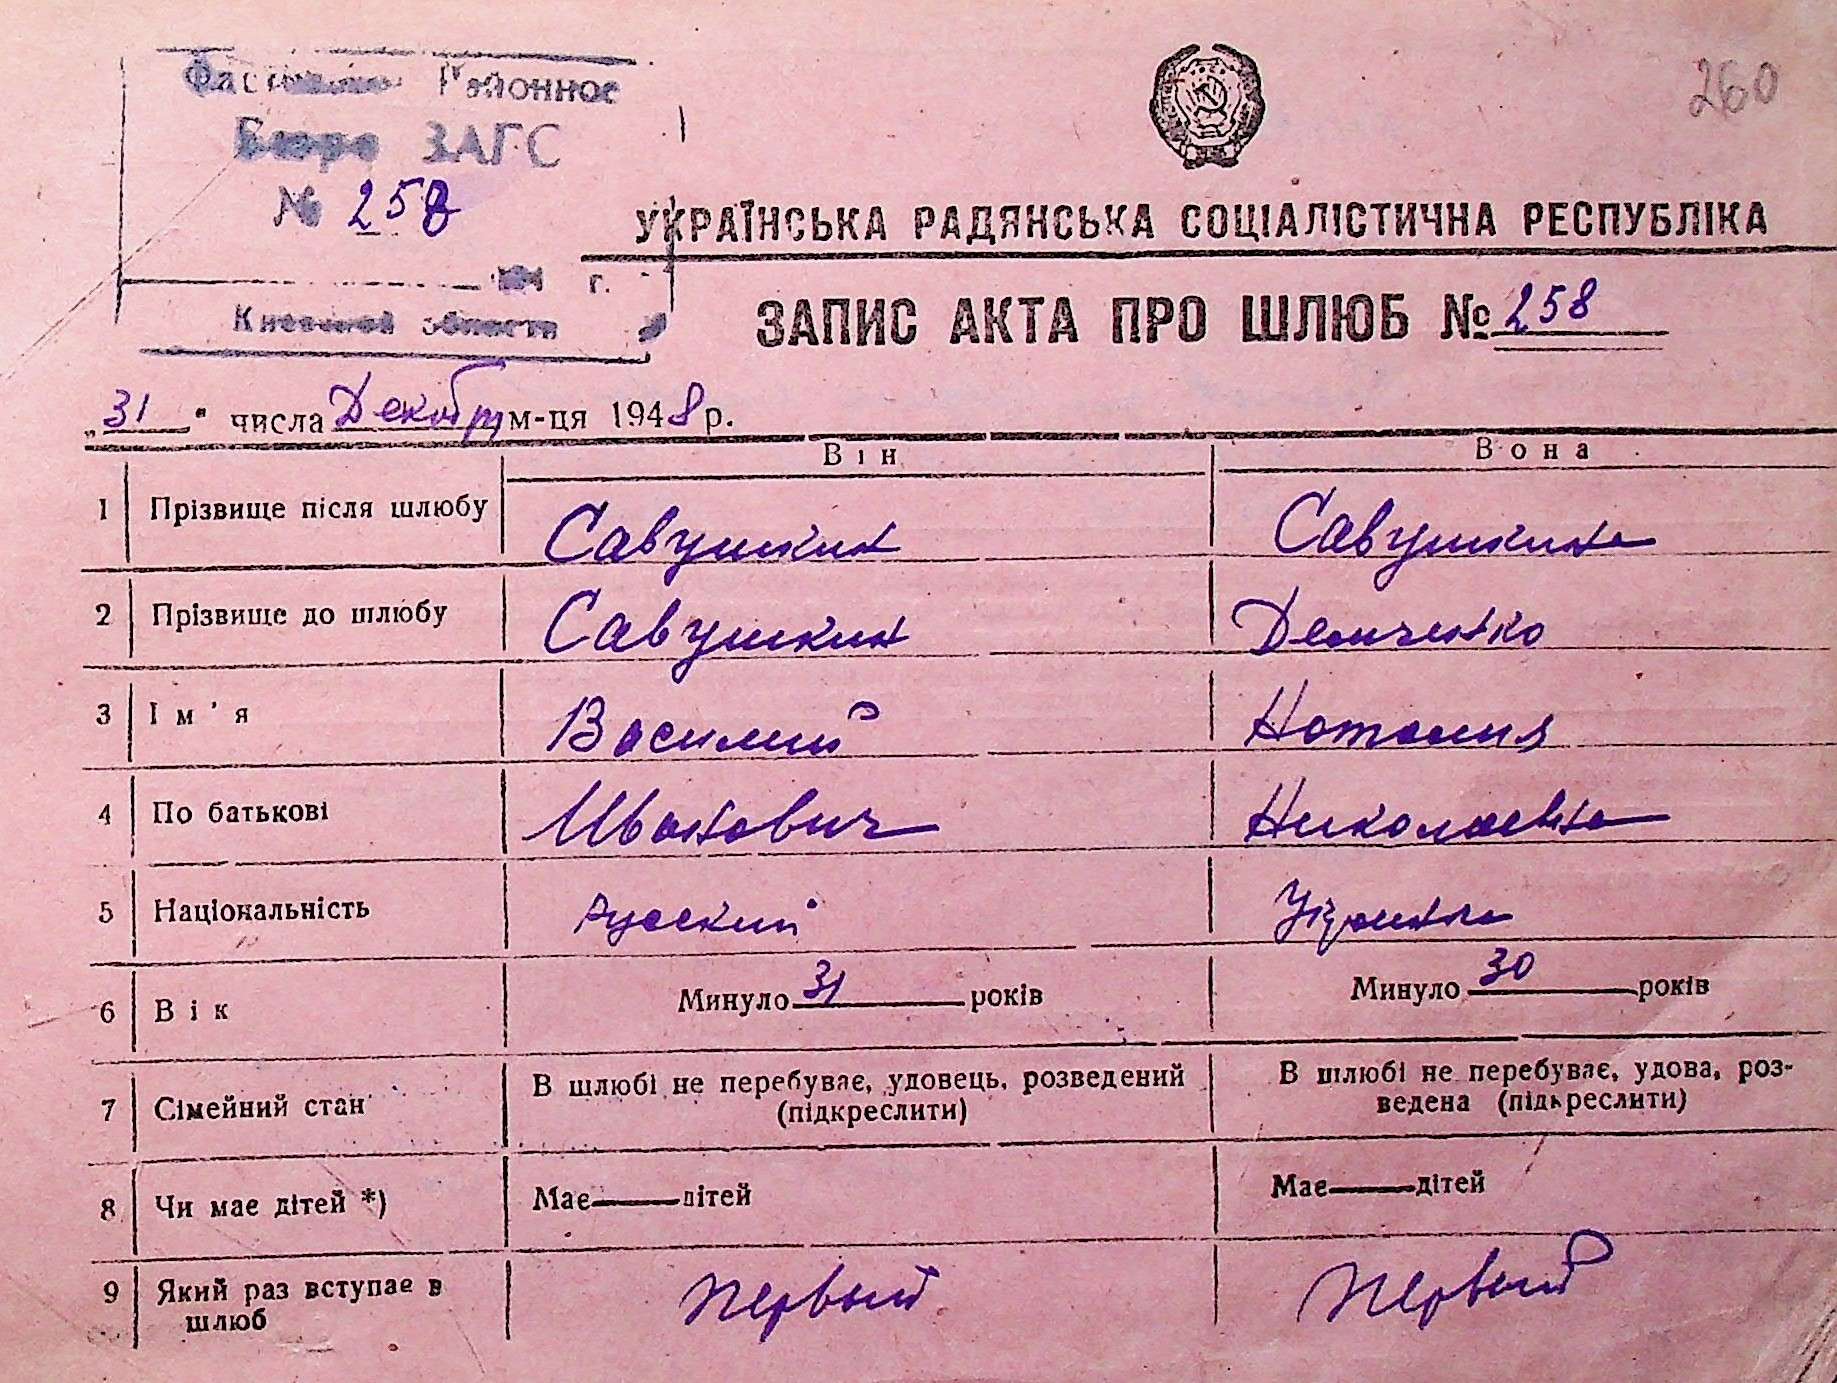 260
Фастовское Районное
Бюро ЗАГС
№ 258
194 г.
Киевской области
УКРАЇНСЬКА РАДЯНСЬКА СОЦІАЛІСТИЧНА РЕСПУБЛІКА
ЗАПИС АКТА ПРО ШЛЮБ № 258
„31" числа Декабря м-ця 1948 р.
Він Вона
1 Прізвище після шлюбу Савушкин Савушкина
2 Прізвище до шлюбу Савушкин Демченко
3 Ім'я Василий Наталия
4 По батькові Иванович Николаевна
5 Національність Русский Украинка
6 Вік Минуло 31 років Минуло 30 років
7 Сімейний стан В шлюбі не перебуває, удовець, розведений (підкреслити) В шлюбі не перебуває, удова, роз-
ведена (підкреслити)
8 Чи має дітей *) Має — дітей Має — дітей
9 Який раз вступає в шлюб первый первый